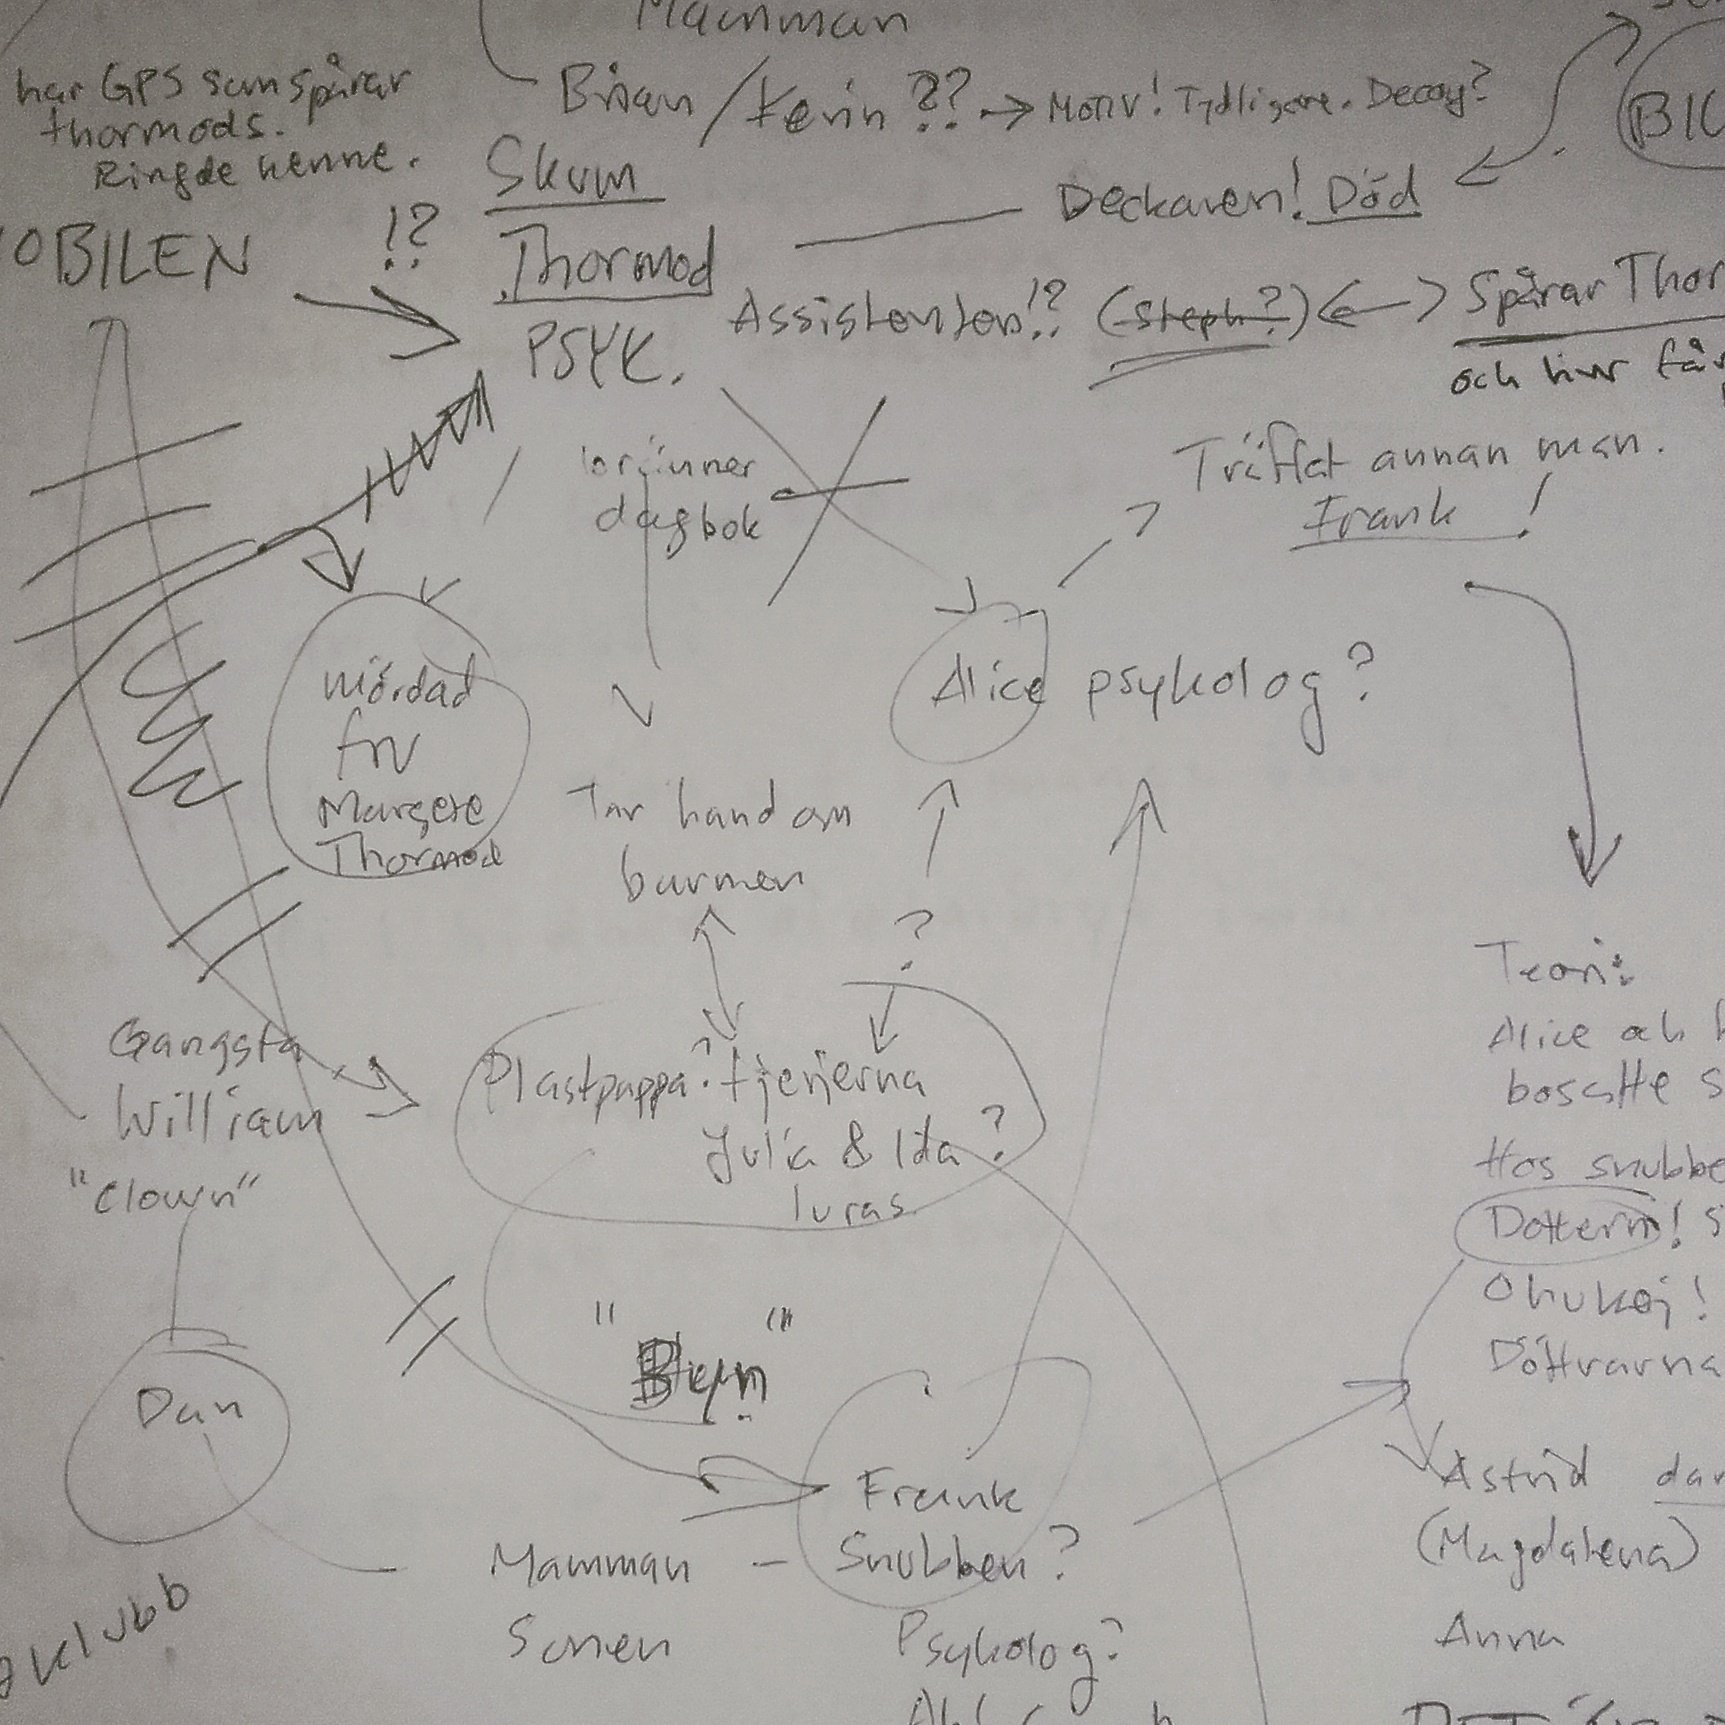 Mamman
Brian/Kevin ?? → Motiv! Tydligare. Decoy?
har GPS som spårar
thormods.
Ringde henne.
Skum
Thormod
PSYK.
OBILEN !?
Deckaren! Död
BIL
Assistenten!? (Steph?) ↔ Spårar Thor
och hur får
Träffat annan man.
Frank !
dagbok
Mördad
fru
Margete
Thormod
Alice psykolog?
Tar hand om
barnen
?
Gangsta
William
"Clown"
Plastpappa? tjejerna
Julia & Ida?
luras
Teori:
Alice och
bosatte s
Hos snubbe
Dottern! S
Ohukej!
Döttrarna
Dan
Frank
Mamman – Snubben?
Sonen
Psykolog?
Astrid dar
(Magdalena)
Anna
klubb